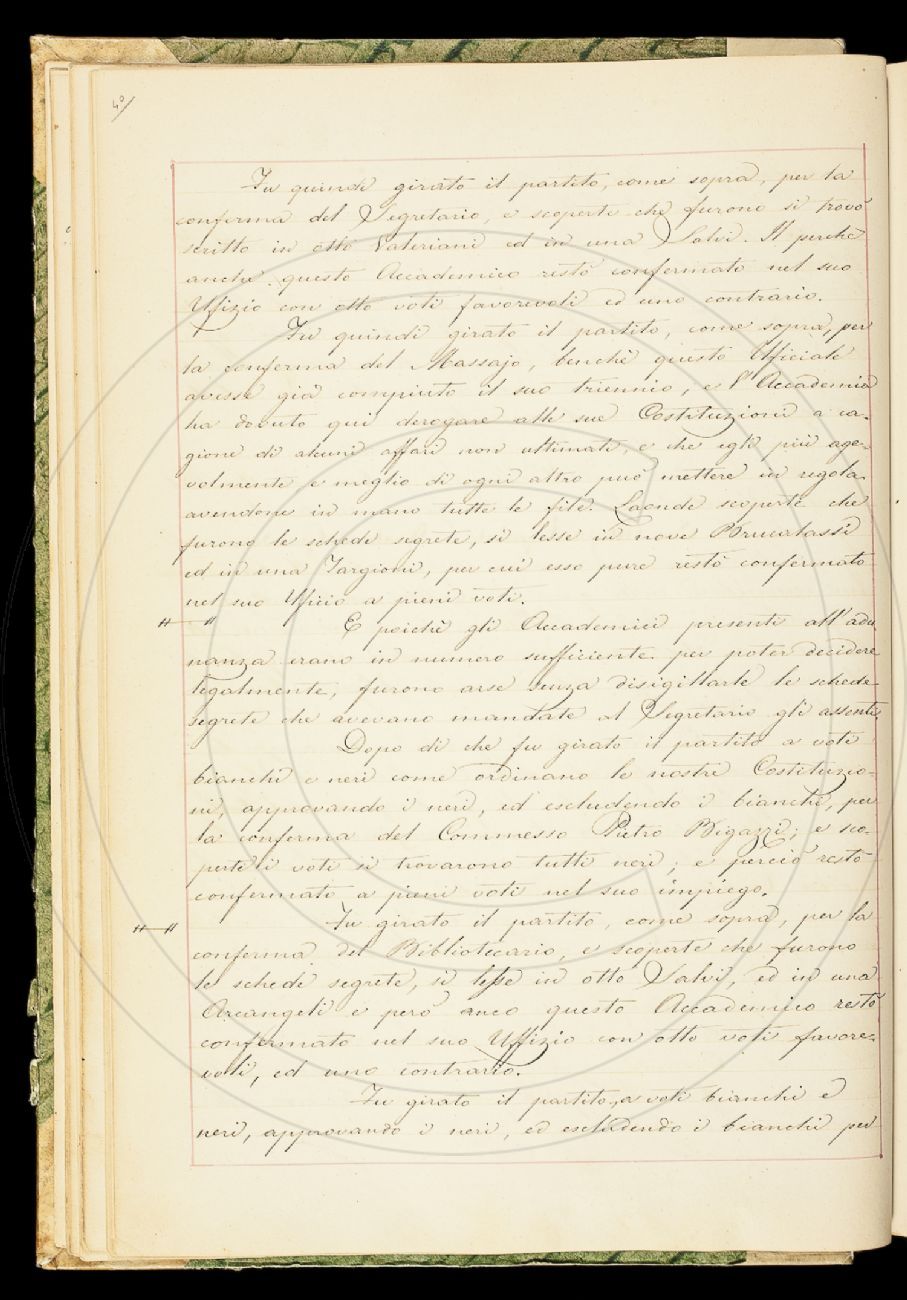 40
Fu quindi girato il partito, come sopra, per la
conferma del Segretario, e scoperte che furono si trovò
scritto in otto Valeriani ed in una Salvi. Il perchè
anche questo Accademico restò confermato nel suo
Ufizio con otto voti favorevoli ed uno contrario.
Fu quindi girato il partito, come sopra, per
la conferma del Massajo, benchè questo Ufficiale
avesse già compiuto il suo triennio, e l'Accademia
ha dovuto qui derogare alle sue Costituzioni a ca-
gione di alcuni affari non ultimati, e che egli più age-
volmente e meglio di ogni altro può mettere in regola
avendone in mano tutte le file. Laonde scoperte che
furono le schede segrete, si lesse in nove Brucalassi
ed in una Targioni, per cui esso pure restò confermato
nel suo Uficio a pieni voti.
E poichè gli Accademici presenti all'adu
nanza erano in numero sufficiente per poter decidere
legalmente, furono arse senza disigillarle le schede
segrete che avevano mandate al Segretario gli assenti.
Dopo di che fu girato il partito a voti
bianchi e neri come ordinano le nostre Costituzio-
ni, approvando i neri, ed escludendo i bianchi, per
la conferma del Commesso Pietro Bigazzi; e sco-
perti li voti si trovarono tutti neri; e perciò restò
confermato a pieni voti nel suo impiego.
Fu girato il partito, come sopra, per la
conferma del Bibliotecario, e scoperte che furono
le schede segrete, si lesse in otto Salvi, ed in una
Arcangeli e però anco questo Accademico restò
confermato nel suo Uffizio con otto voti favore-
voli, ed uno contrario.
Fu girato il partito, a voti bianchi e
neri, approvando i neri, ed escludendo i bianchi per